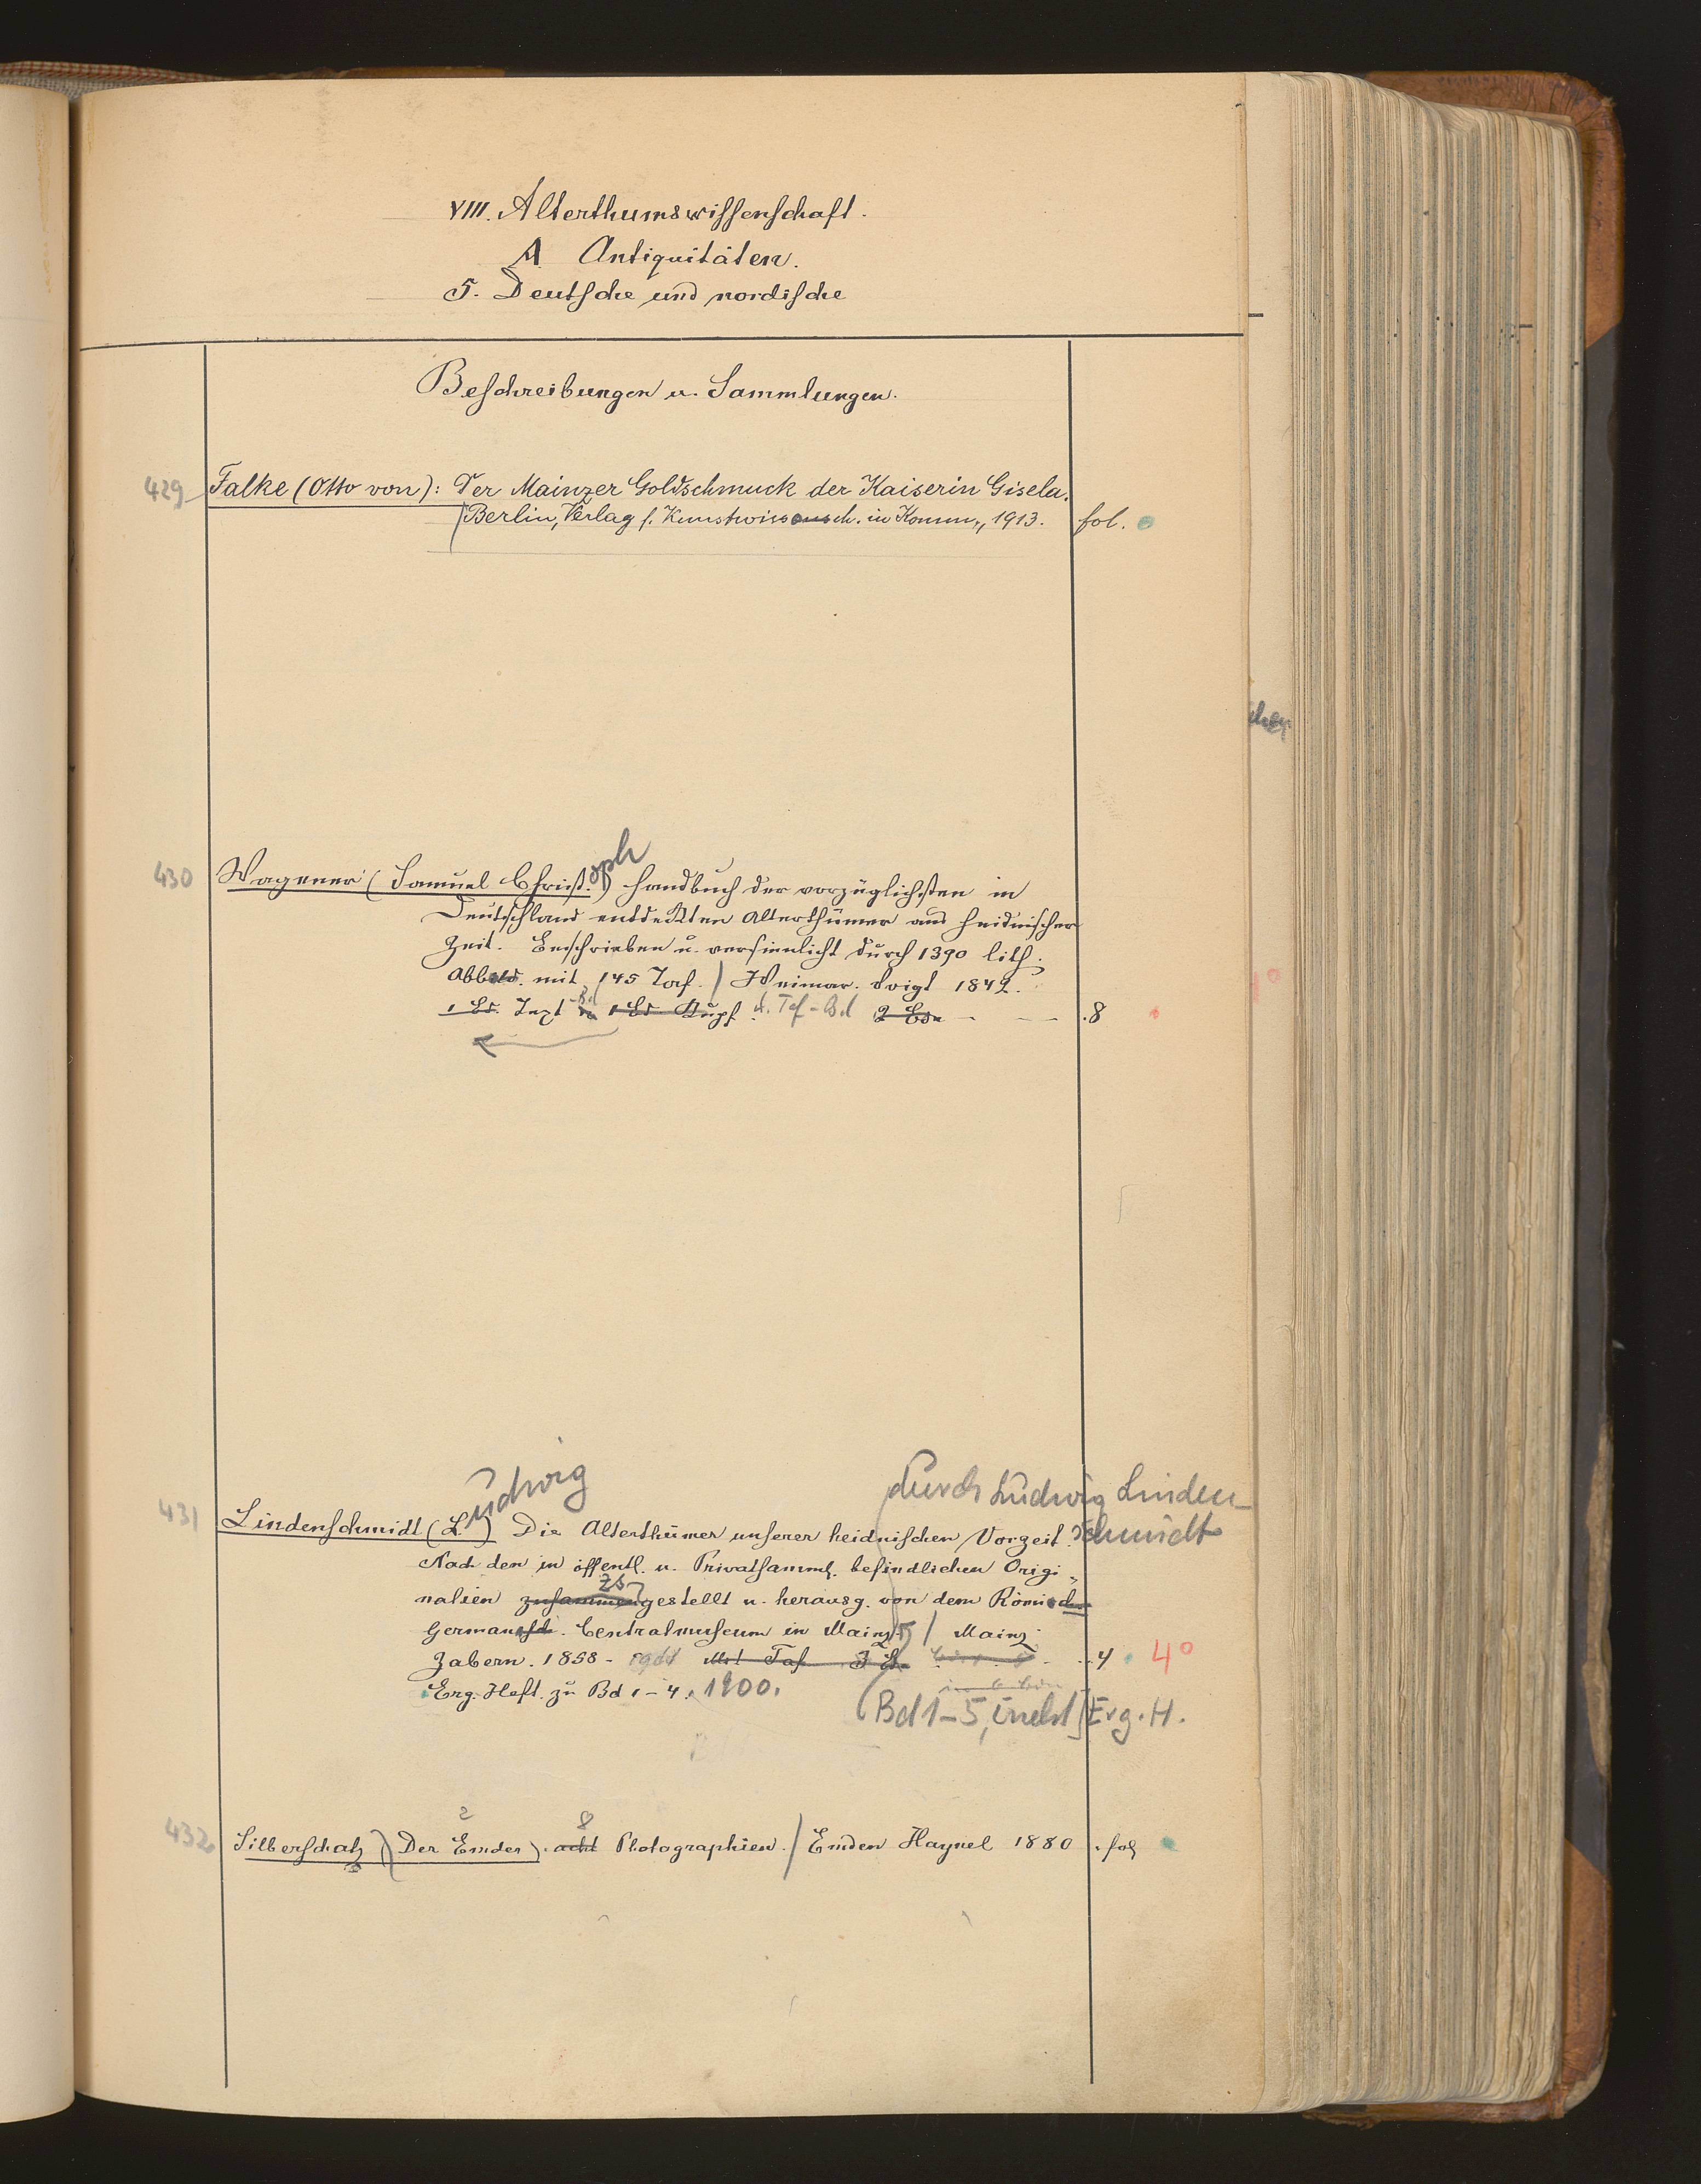 VIII. Alterthumswissenschaft.
A Antiquitäten.
5. Deutsche und nordische
Beschreibungen u. Sammlungen.
429 Falke (Otto von): Der Mainzer Goldschmuck der Kaiserin Gisela.
Berlin, Verlag f. Kunstwissensch. in Komm., 1913. fol.
430 Wagener (Samuel Christ.oph) Handbuch der vorzüglichsten in
Deutschland entdeckten Alterthümer aus heidnischer
Zeit. Beschrieben u. versinnlicht durch 1390 lith.
Abbild. mit 145 Taf. / Weimar. Voigt 1842.
1 Bd. Text 1 Bd. Kupf. u. Taf-Bd 2 Bde .8
durch Ludwig Linden-
schmidt
431 Lindenschmidt (Ludwig) Die Alterthümer unserer heidnischen Vorzeit.
Nach den in öffentl. u. Privatsamml. befindlichen Origi-
nalien zusammengestellt u. herausg. von dem Römisch
zs
Germanisch. Centralmuseum in Mainz / Mainz
Zabern. 1858- Mit Taf. 3 B. 4 4°
Erg. Heft. zu Bd 1-4. 1900.
(Bd 1-5, Erg. H.
432 Silberschatz) (Der Emder). acht 8 Photographien. / Emden Haynel 1880 . fol
2
chen